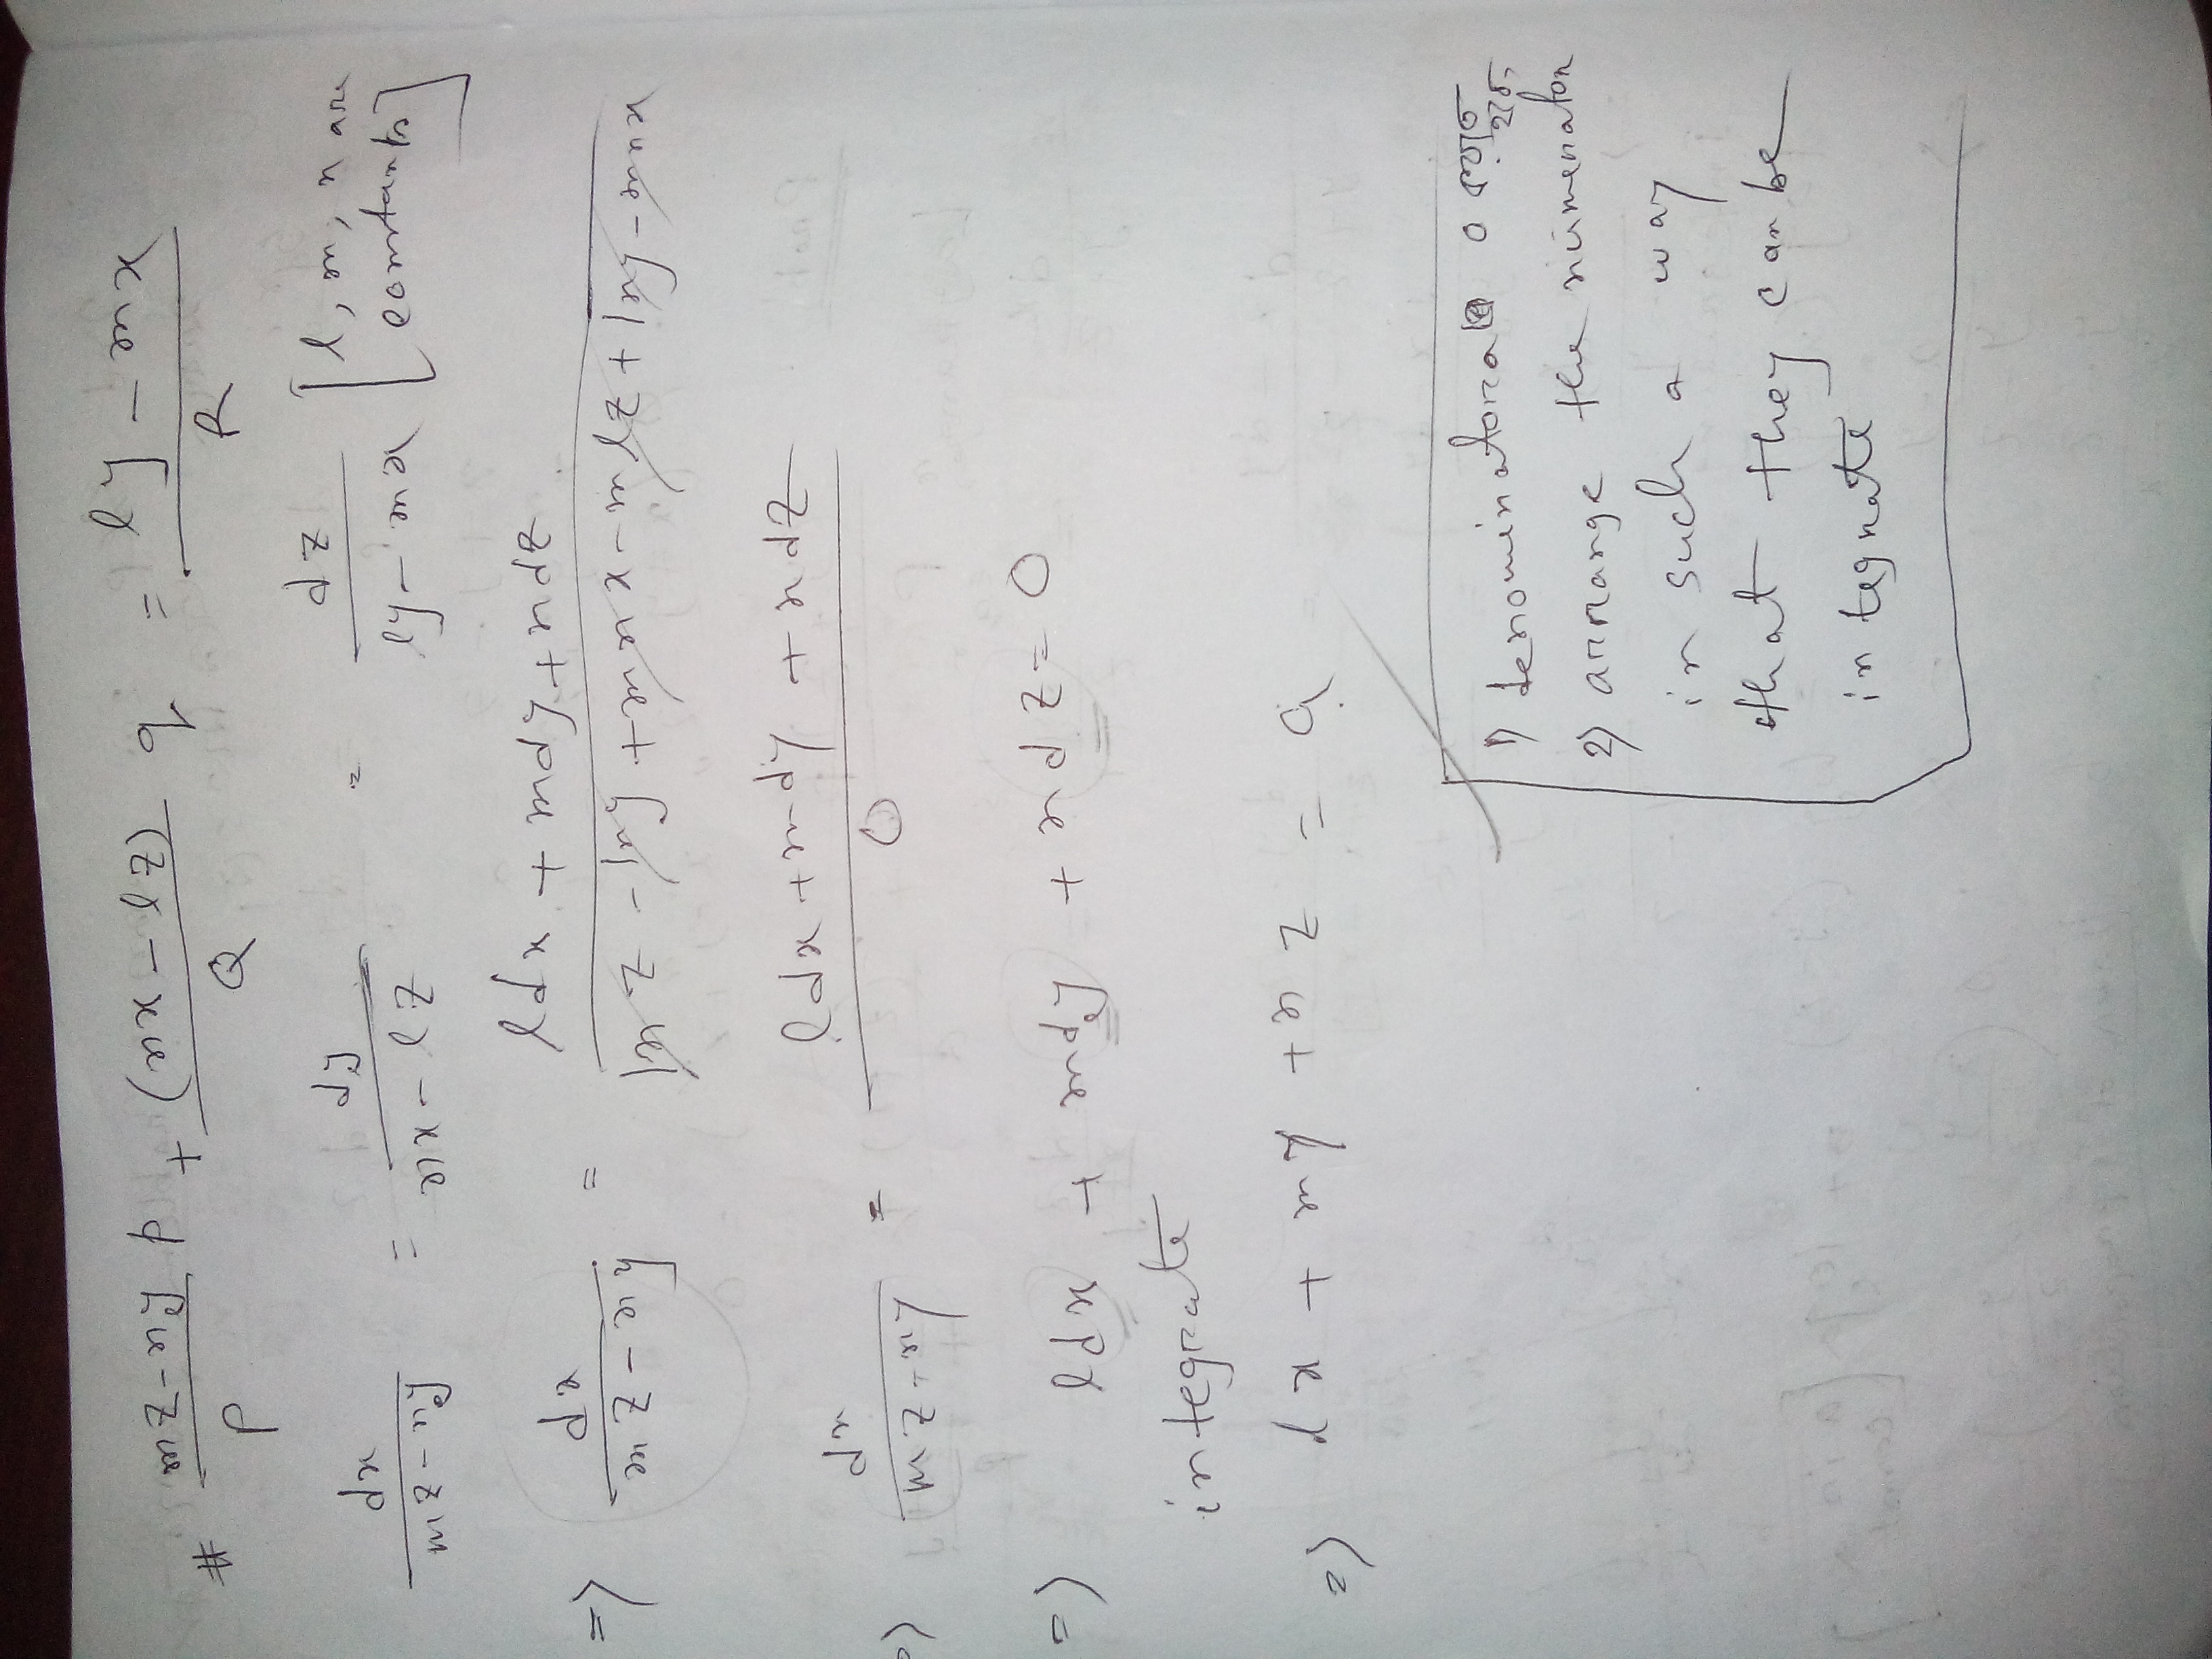 # mz - ny p + (nx - lz) q = ly - mx
P Q R
dx/(mz - ny) = dy/(nx - lz) = dz/(ly - mx) [l, m, n are constants]
=> dx/(mz - ny) = (ldx + mdy + ndz)/(lmz - lny + mnx - mlz + lny - mnx)
=> dx/(mz - ny) = (ldx + mdy + ndz)/0
=> ldx + mdy + ndz = 0
integrate
=> lx + my + nz = a
1) denominator a 0
2) arrange the numerator
in such a way
that they can be
integrate